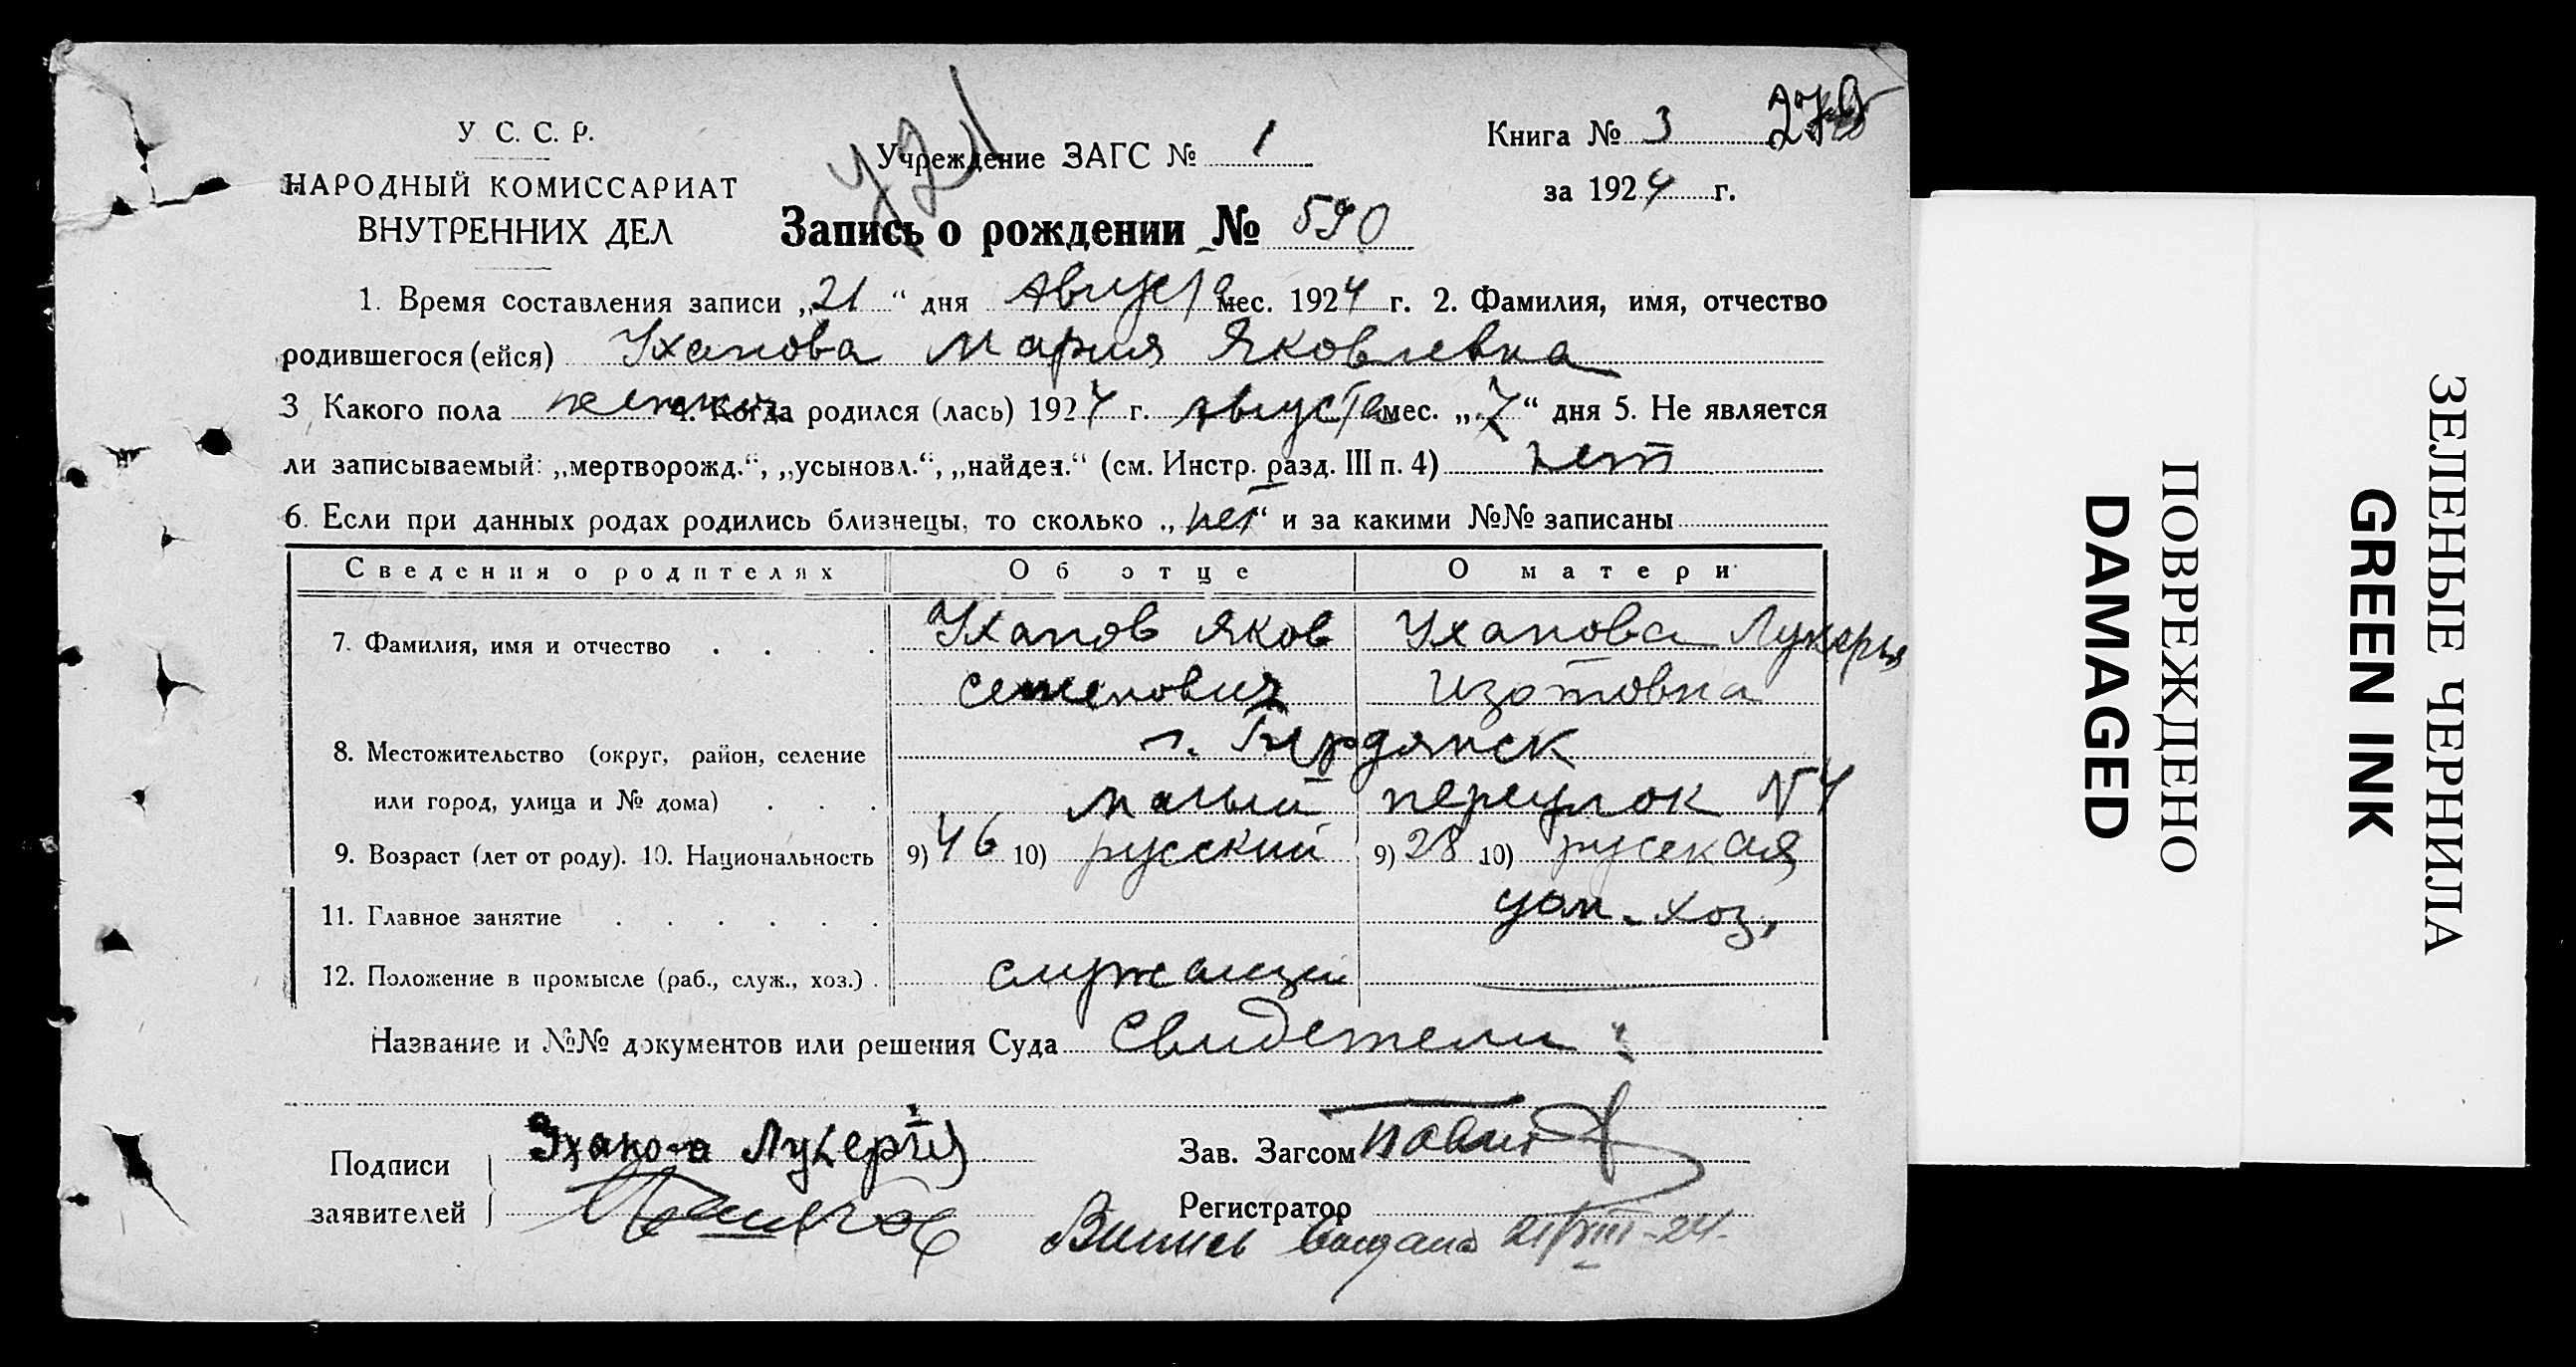 У. С. С. Р.
НАРОДНЫЙ КОМИССАРИАТ
ВНУТРЕННИХ ДЕЛ
Учреждение ЗАГС № 1
Книга № 3
за 1924 г.
Запись о рождении № 590
1. Время составления записи „21“ дня Августа мес. 1924 г. 2. Фамилия, имя, отчество
родившегося (ейся) Уханова Мария Яковлевна
3 Какого пола женский 4. Когда родился (лась) 1924 г. августа мес. „7“ дня 5. Не является
ли записываемый: „мертворожд.“, „усыновл.“, „найден.“ (см. Инстр. разд. III п. 4) нет
6. Если при данных родах родились близнецы, то сколько „нет“ и за какими №№ записаны
Сведения о родителях Об отце О матери
7. Фамилия, имя и отчество Уханов Яков Уханова Лукерья
Семенович Изотовна
8. Местожительство (округ, район, селение г. Бердянск
или город, улица и № дома) малый переулок № 4
9. Возраст (лет от роду). 10. Национальность 9) 46 10) русский 9) 28 10) русская
11. Главное занятие дом. хоз.
12. Положение в промысле (раб., служ., хоз.) служащий
Название и №№ документов или решения Суда Свидетели:
Подписи Уханова Лукерия Зав. Загсом
заявителей Регистратор
Выпись выдана 21/VIII-24.
ПОВРЕЖДЕНО
DAMAGED
ЗЕЛЕНЫЕ ЧЕРНИЛА
GREEN INK